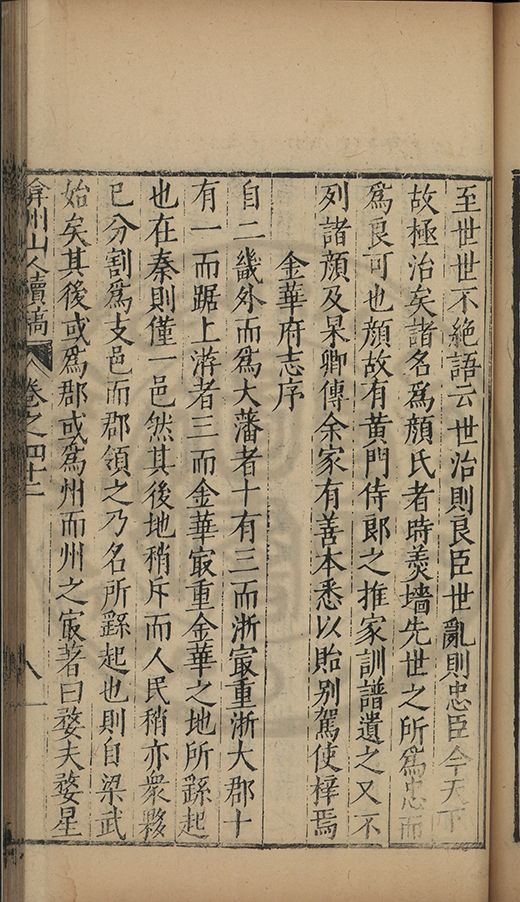 至世世不絕語云世治則良臣世亂則忠臣今天下
故極治矣諸名爲顏氏者時羮墻先世之所爲忠而
爲良可也顏故有黄門侍郎之推家訓譜遺之又不
列諸顏及杲卿傳余家有善本悉以貽别駕使梓焉
金華府志序
自二畿外而爲大藩者十有三而浙㝡重浙大郡十
有一而踞上游者三而金華㝡重金華之地所繇起
也在秦則僅一邑然其後地稍斥而人民稍亦衆夥
已分割爲支邑而郡領之乃名所繇起也則自梁武
始矣其後或爲郡或爲州而州之㝡著曰婺夫婺星
弇州山人續稿 卷之四十二 八